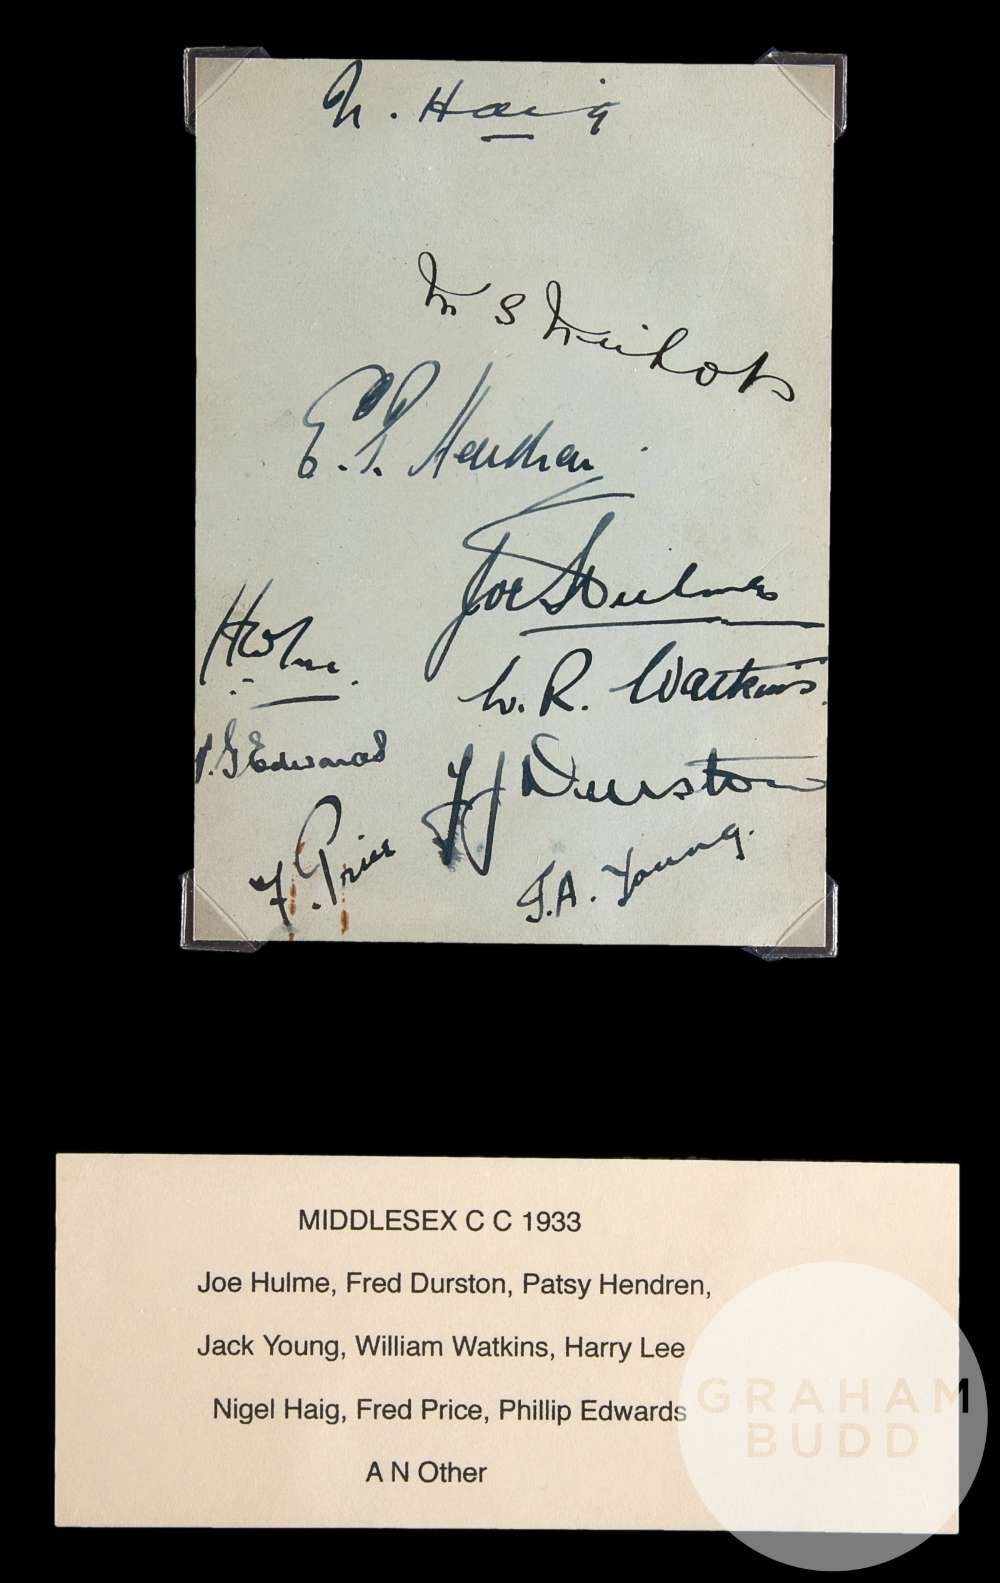 N. Haig
M S
E. P. Hendren
Joe Hulme
H
W. R. Watkins.
P. G Edwards
F J Durston
F. Price
J. A. Young.
MIDDLESEX C C 1933
Joe Hulme, Fred Durston, Patsy Hendren,
Jack Young, William Watkins, Harry Lee
Nigel Haig, Fred Price, Phillip Edwards
A N Other
GRAHAM
BUDD